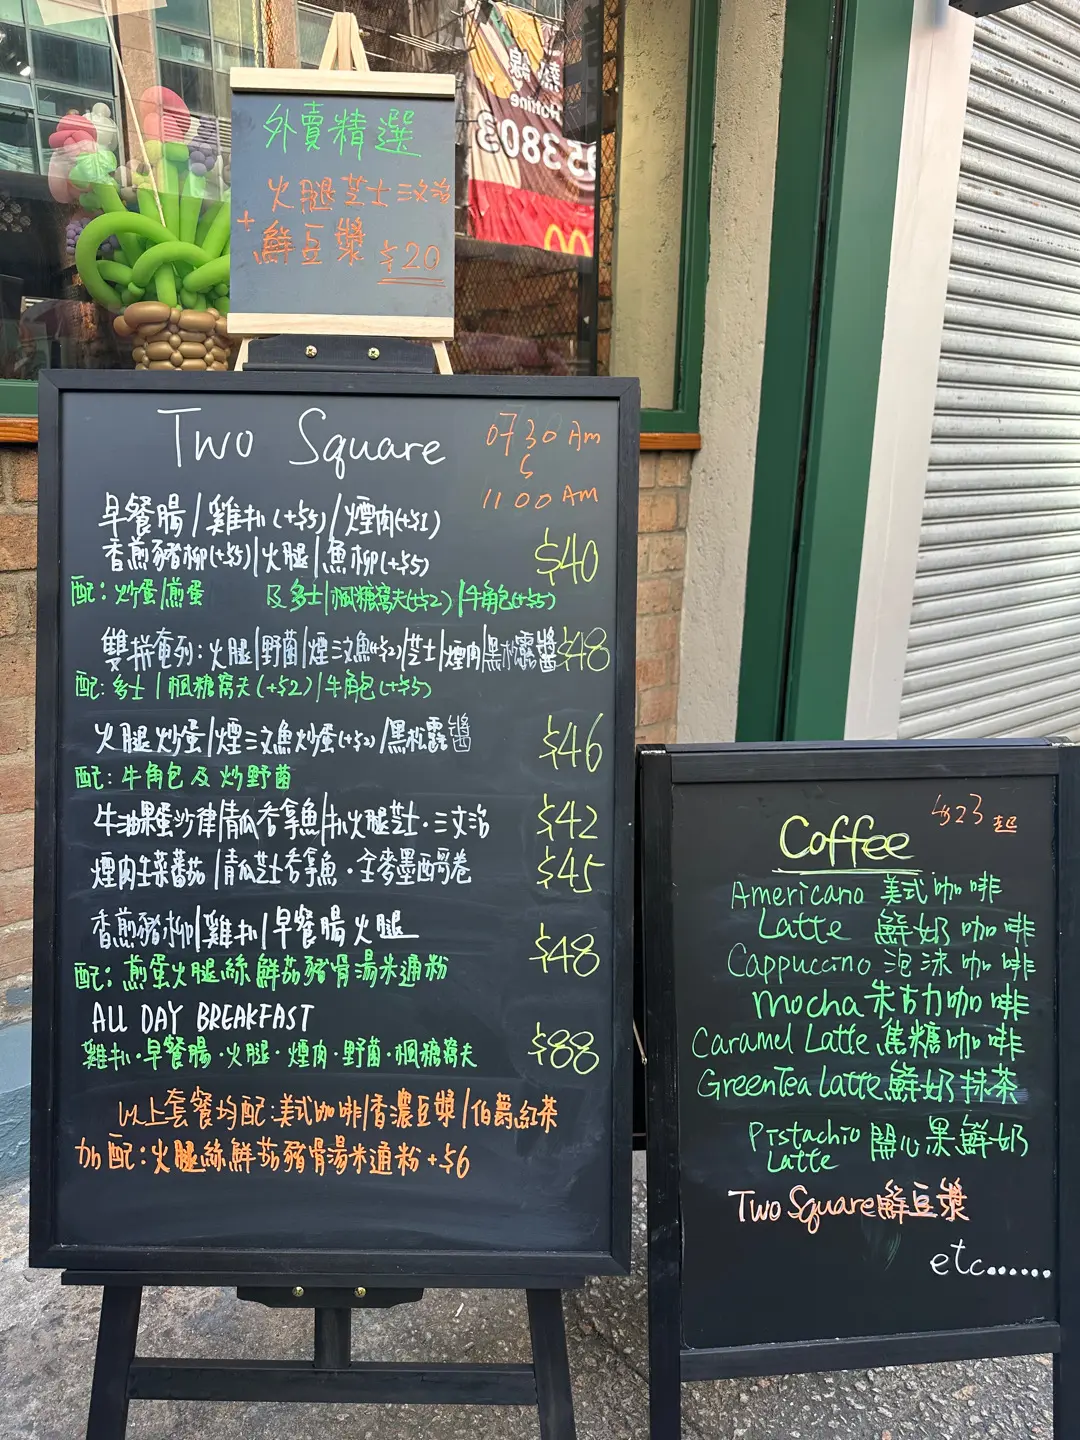 外賣精選
火腿芝士三文治
+鮮豆漿 $20
熱線
Hotline
3803
953
Two Square
0730 Am
1100 AM
早餐腸/雞扒(+$5)/煙肉(+$1)
香煎豬柳(+$5)/火腿/魚柳(+$5)
$40
配：炒蛋/煎蛋 及多士/楓糖窩夫(+$2)/牛角包(+$5)
雙拼系列：火腿/野菌/煙三文魚(+$2)/芝士/煙肉/黑松露醬 $48
配：多士/楓糖窩夫(+$2)/牛角包(+$5)
火腿炒蛋/煙三文魚炒蛋(+$2)/黑松露醬
$46
配：牛角包及炒野菌
牛油果蛋沙律/青瓜吞拿魚/扒火腿芝士·三文治 $42
煙肉生菜蕃茄/青瓜芝士吞拿魚·全麥墨西哥卷 $45
香煎豬柳/雞扒/早餐腸火腿
$48
配：煎蛋火腿絲鮮茄豬骨湯米通粉
ALL DAY BREAKFAST
$88
雞扒·早餐腸·火腿·煙肉·野菌·楓糖窩夫
以上套餐均配：美式咖啡/香濃豆漿/伯爵紅茶
加配：火腿絲鮮茄豬骨湯米通粉+$6
$23起
Coffee
Americano 美式咖啡
Latte 鮮奶咖啡
Cappuccino 泡沫咖啡
Mocha 朱古力咖啡
Caramel Latte 焦糖咖啡
GreenTea Latte 鮮奶抹茶
Pistachio 開心果鮮奶
Latte
Two Square 鮮豆漿
etc......